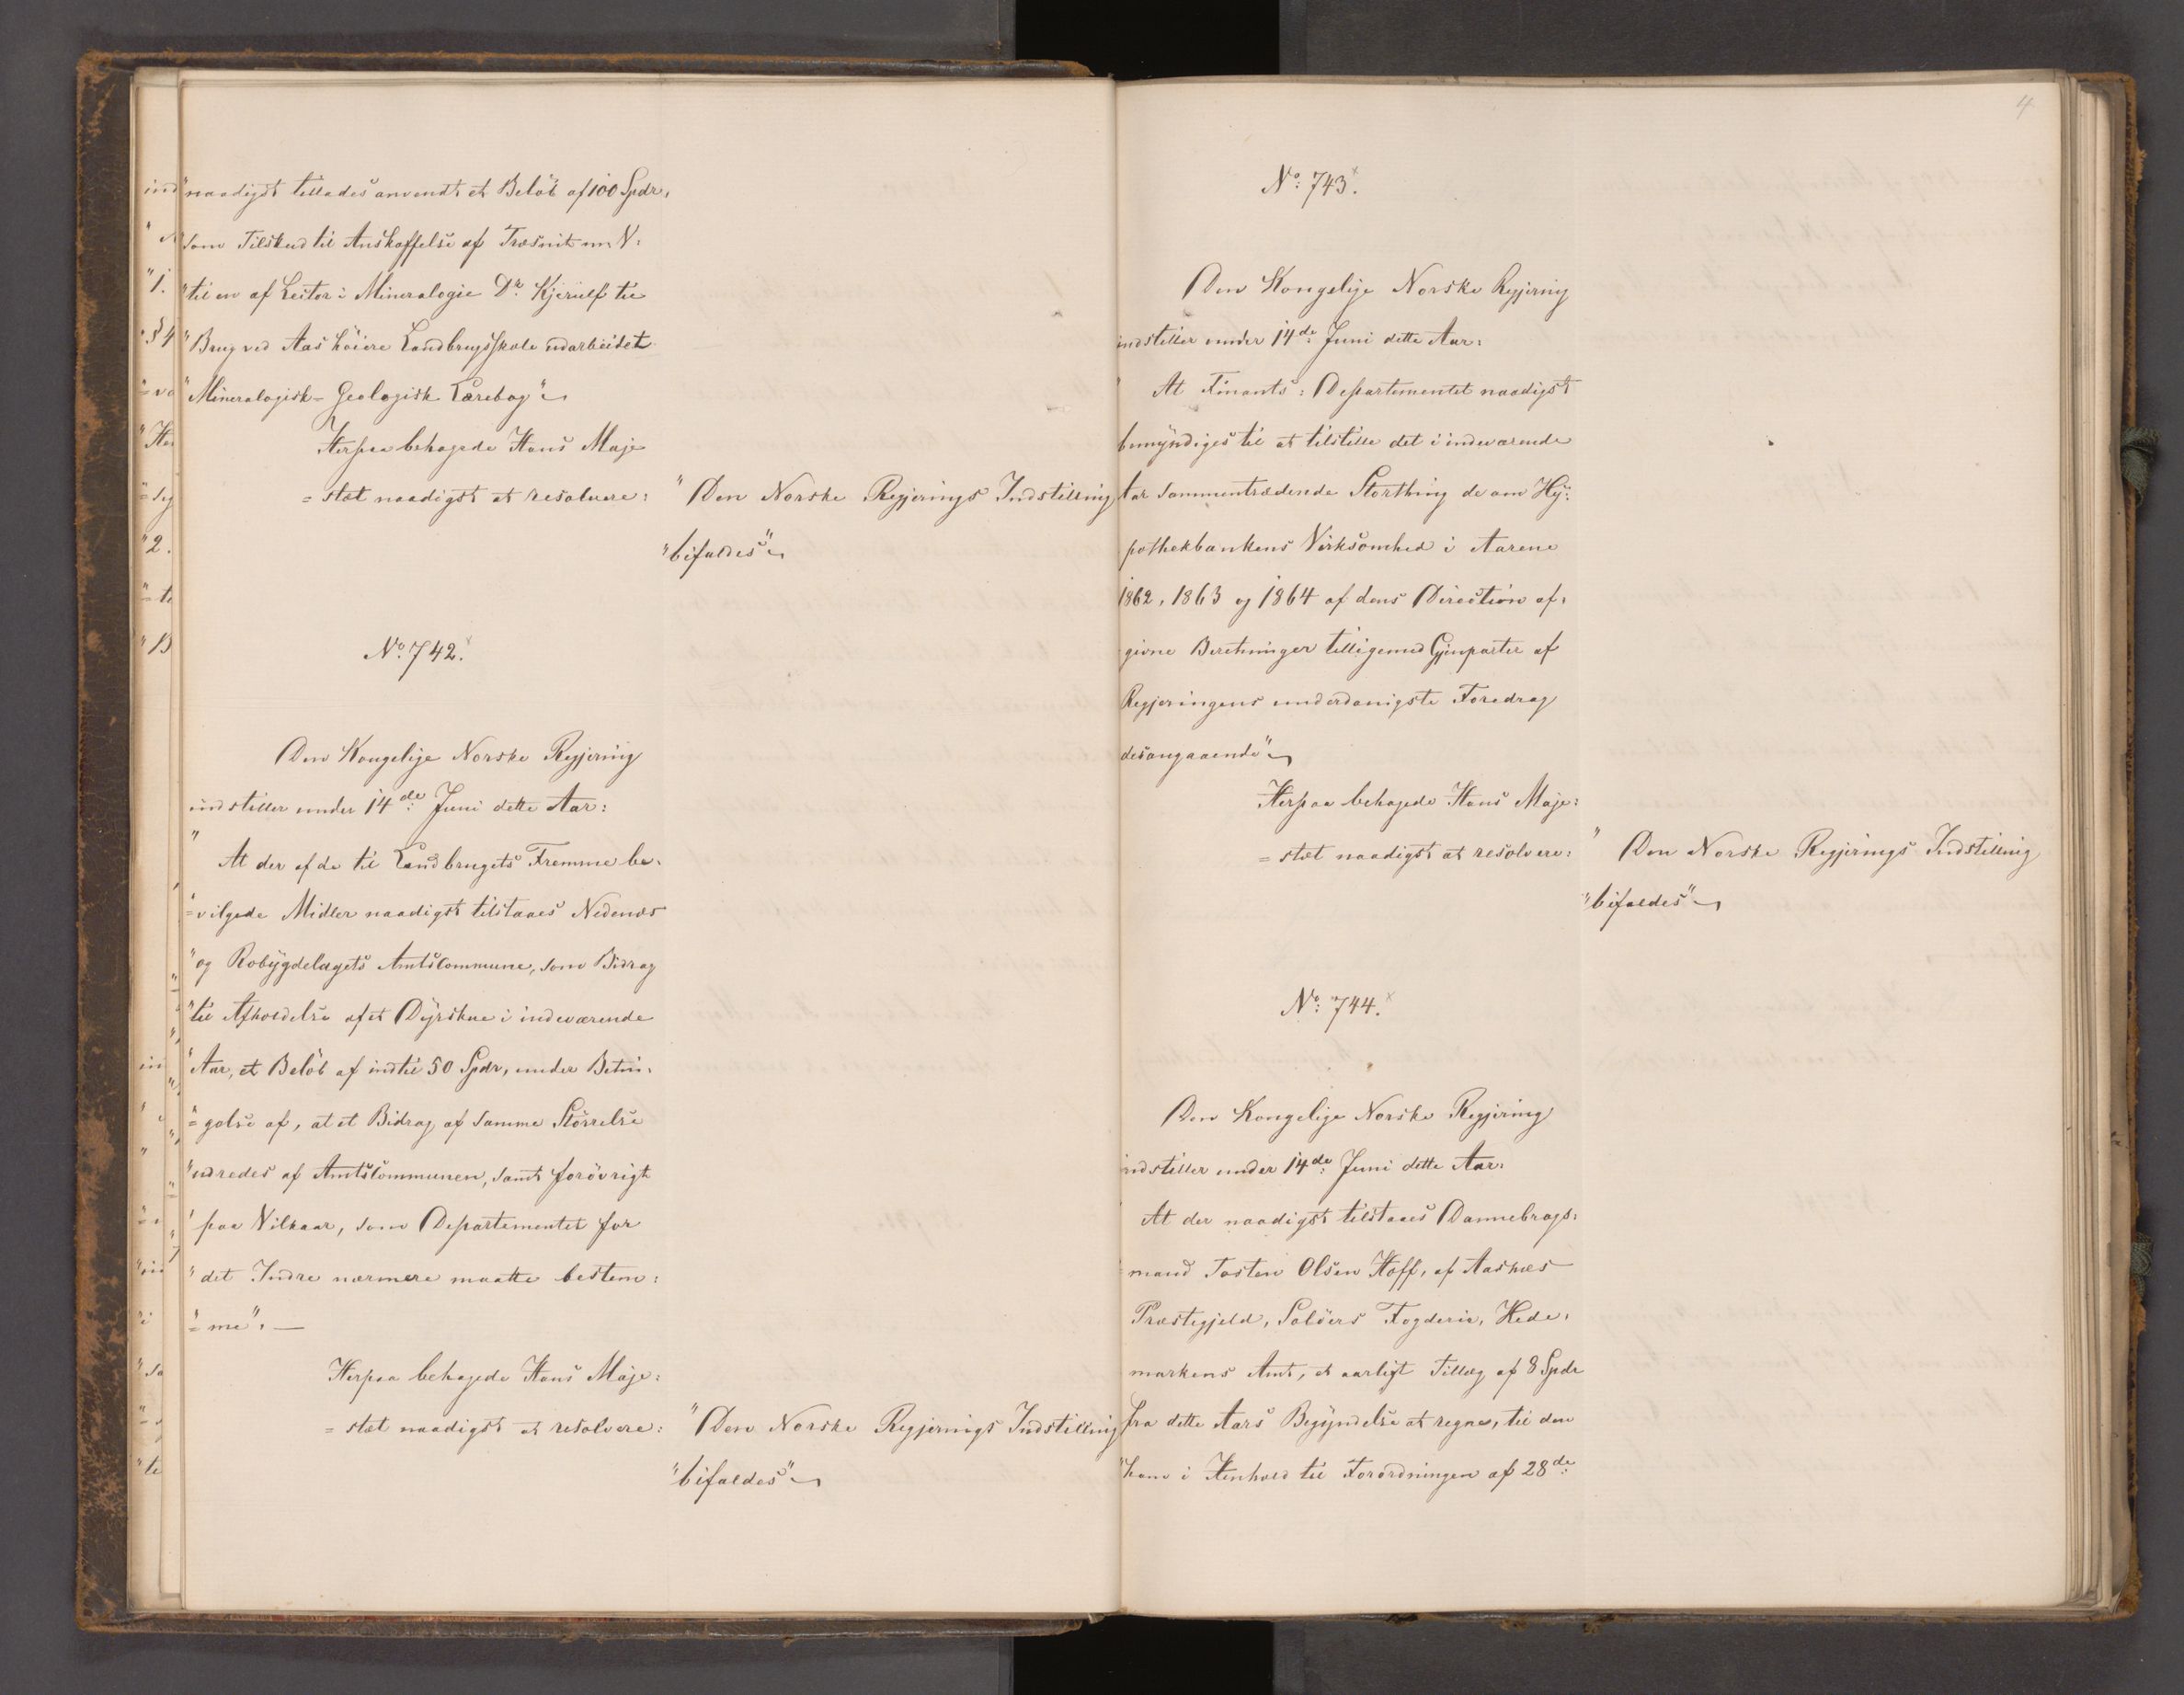 "naadigst tillades anvendt et Beløb af 100 Spdr,
som Tilskud til Anskaffelse af Træsnit m. V:
"til en af Lector i Mineralogie Dr. Kjerulf til
"Brug ved Aas høiere Landbrugsskole udarbeidet
"Mineralogisk-Geologisk Lærebog"
Herpaa behagede Hans Maje
=stæt naadigst at resolvere:
"Den Norske Regjerings Indstilling
"bifaldes"
No. 742.
Den Kongelige Norske Regjering
indstiller under 14de: Juni dette Aar:
"At der af de til Landbrugets Fremme be:
"=vilgede Midler naadigst tilstaaes Nedenæs
"og Robygdelagets Amtscommune, som Bidrag
"til Afholdelse af et Dyrskue i indeværende
"Aar, et Beløb af indtil 50 Spdr, under Betin:
"=gelse af, at et Bidrag af samme Størrelse
"udredes af Amtscommunen, samt forøvrigt
"paa Vilkaar, som Departementet for
"det Indre nærmere maatte bestem:
"=me". —
Herpaa behagede Hans Maje:
=stæt naadigst at resolvere:
"Den Norske Regjerings Indstilling
"bifaldes"
4
No: 743.
Den Kongelige Norske Regjering
indstiller under 14de: Juni dette Aar:
"At Finants: Departementet naadigst
bemyndiges til at tilstille det i indeværende
Aar sammentrædende Storthing de om Hy:
pothekbankens Virksomhed i Aarene
1862, 1863 og 1864 af dens Direction af:
givne Beretninger tilligemed Gjenparter af
Regjeringens underdanigste Foredrag
desangaaende"
Herpaa behagede Hans Maje:
=stæt naadigst at resolvere:
"Den Norske Regjerings Indstilling
"bifaldes"
No: 744.
Den Kongelige Norske Regjering
indstiller under 14de: Juni dette Aar:
At der naadigst tilstaaes Dannebrogs:
mand Tosten Olsen Hoff, af Aasnæs
Præstegjeld, Soløers Fogderie, Hede:
markens Amt, et aarligt Tillæg af 8 Spdr
fra dette Aars Begyndelse at regne, til den
"ham i Henhold til Forordningen af 28de: